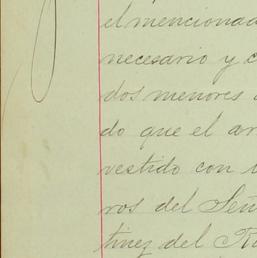 el mencionad
necesario y c
dos menores
do que el ar
vestido con
ros del Señ
tinez del R